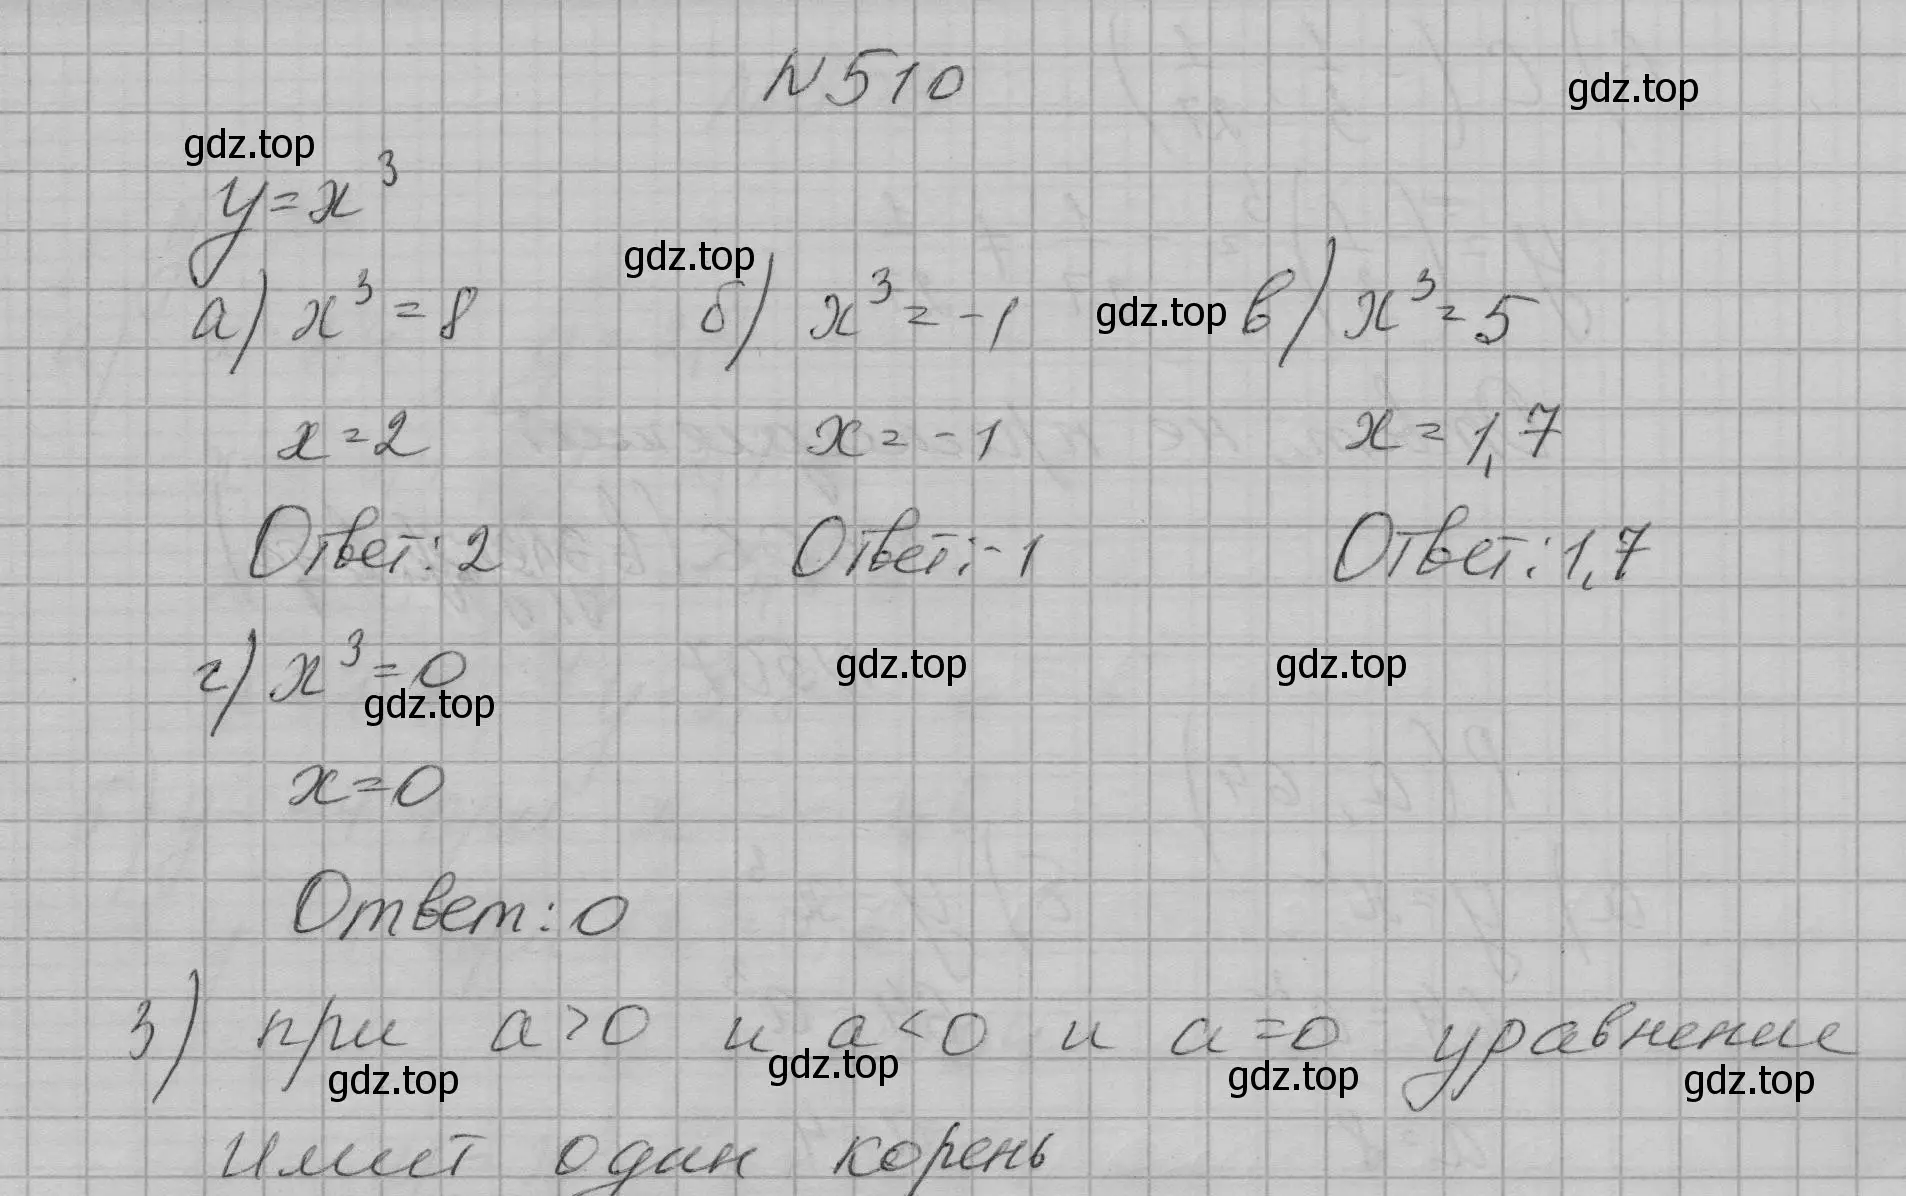 N510
gdz.top
gdz.top
y=x³
gdz.top
а) x³=8 б) x³=-1 gdz.top в) x³=5
x=2 x=-1 x=1,7
Ответ: 2 Ответ: -1 Ответ: 1,7
г) x³=0 gdz.top gdz.top
gdz.top
x=0
Ответ: 0
3) при a>0 и a<0 и a=0 уравнение
gdz.top gdz.top gdz.top gdz.top
имеет один корень